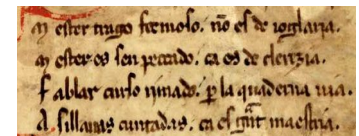 M ester trago fermoso. nō es de ioglaria.
M ester es sen peccado. ca es de clerizia.
F ablar curso rimado. ꝑ la quaderna uia.
A sillauas cuntadas. ca es grāt maestria.